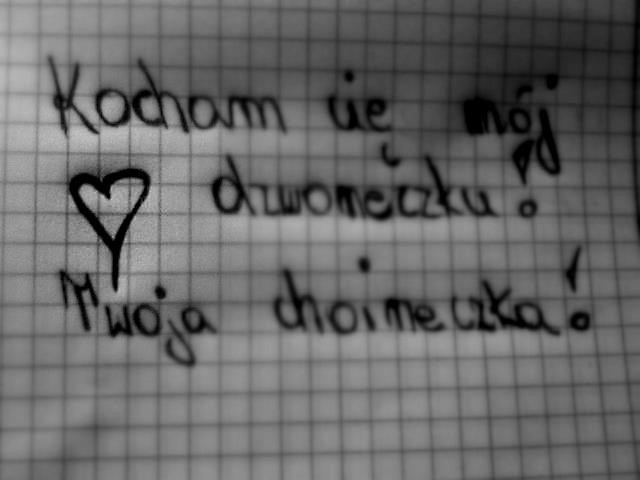 Kocham cię mój
dzwoneczku!
Twoja choineczka!